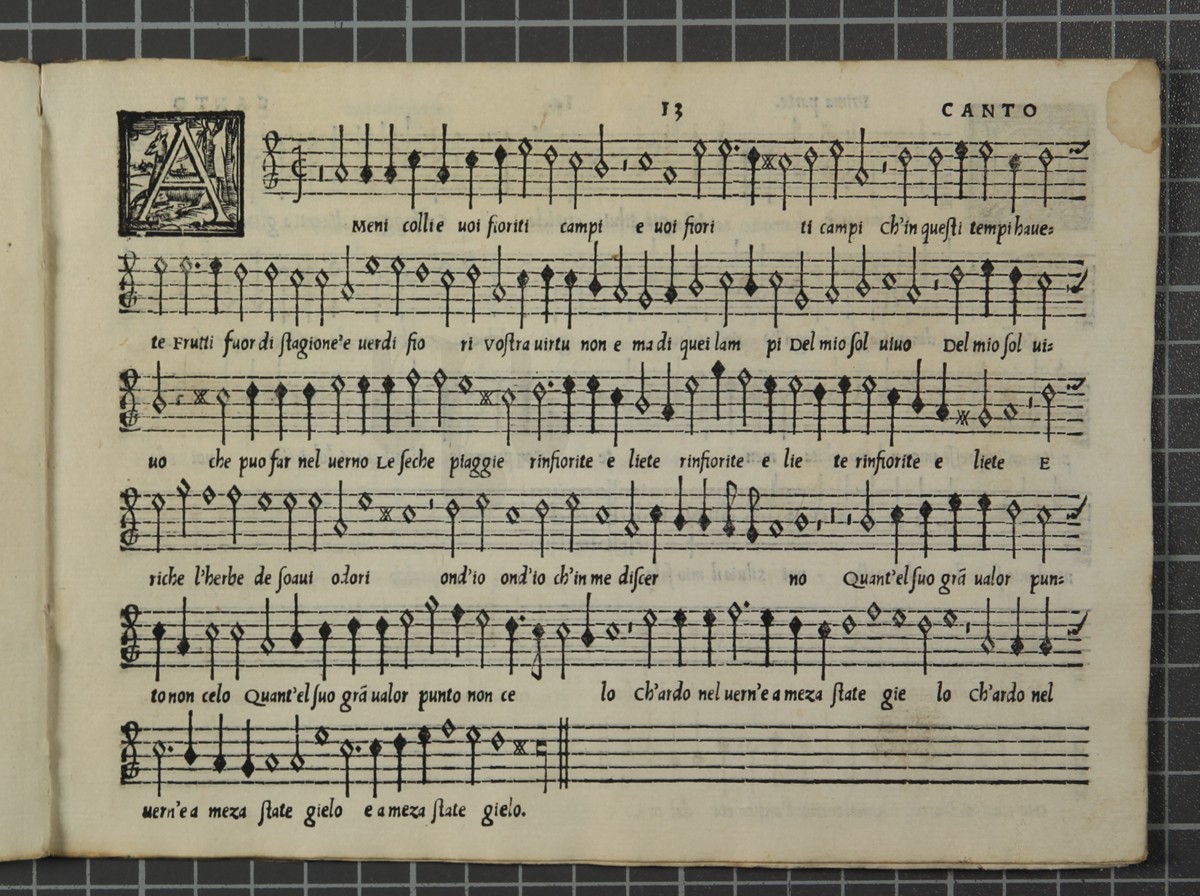 13 CANTO
A Meni colli e uoi fioriti campi e uoi fiori ti campi Ch'in questi tempi haue=
te Frutti fuor di stagione'e uerdi fio ri Vostra uirtu non e ma di quei lam pi Del mio sol uiuo Del mio sol ui=
uo che puo far nel uerno Le seche piaggie rinfiorite e liete rinfiorite e lie te rinfiorite e liete E
riche l'herbe de soaui odori ond'io ond'io ch'in me discer no Quant'el suo grã ualor pun=
to non celo Quant'el suo grã ualor punto non ce lo Ch'ardo nel uern'e a meza state gie lo Ch'ardo nel
uern'e a meza state gielo e a meza state gielo.